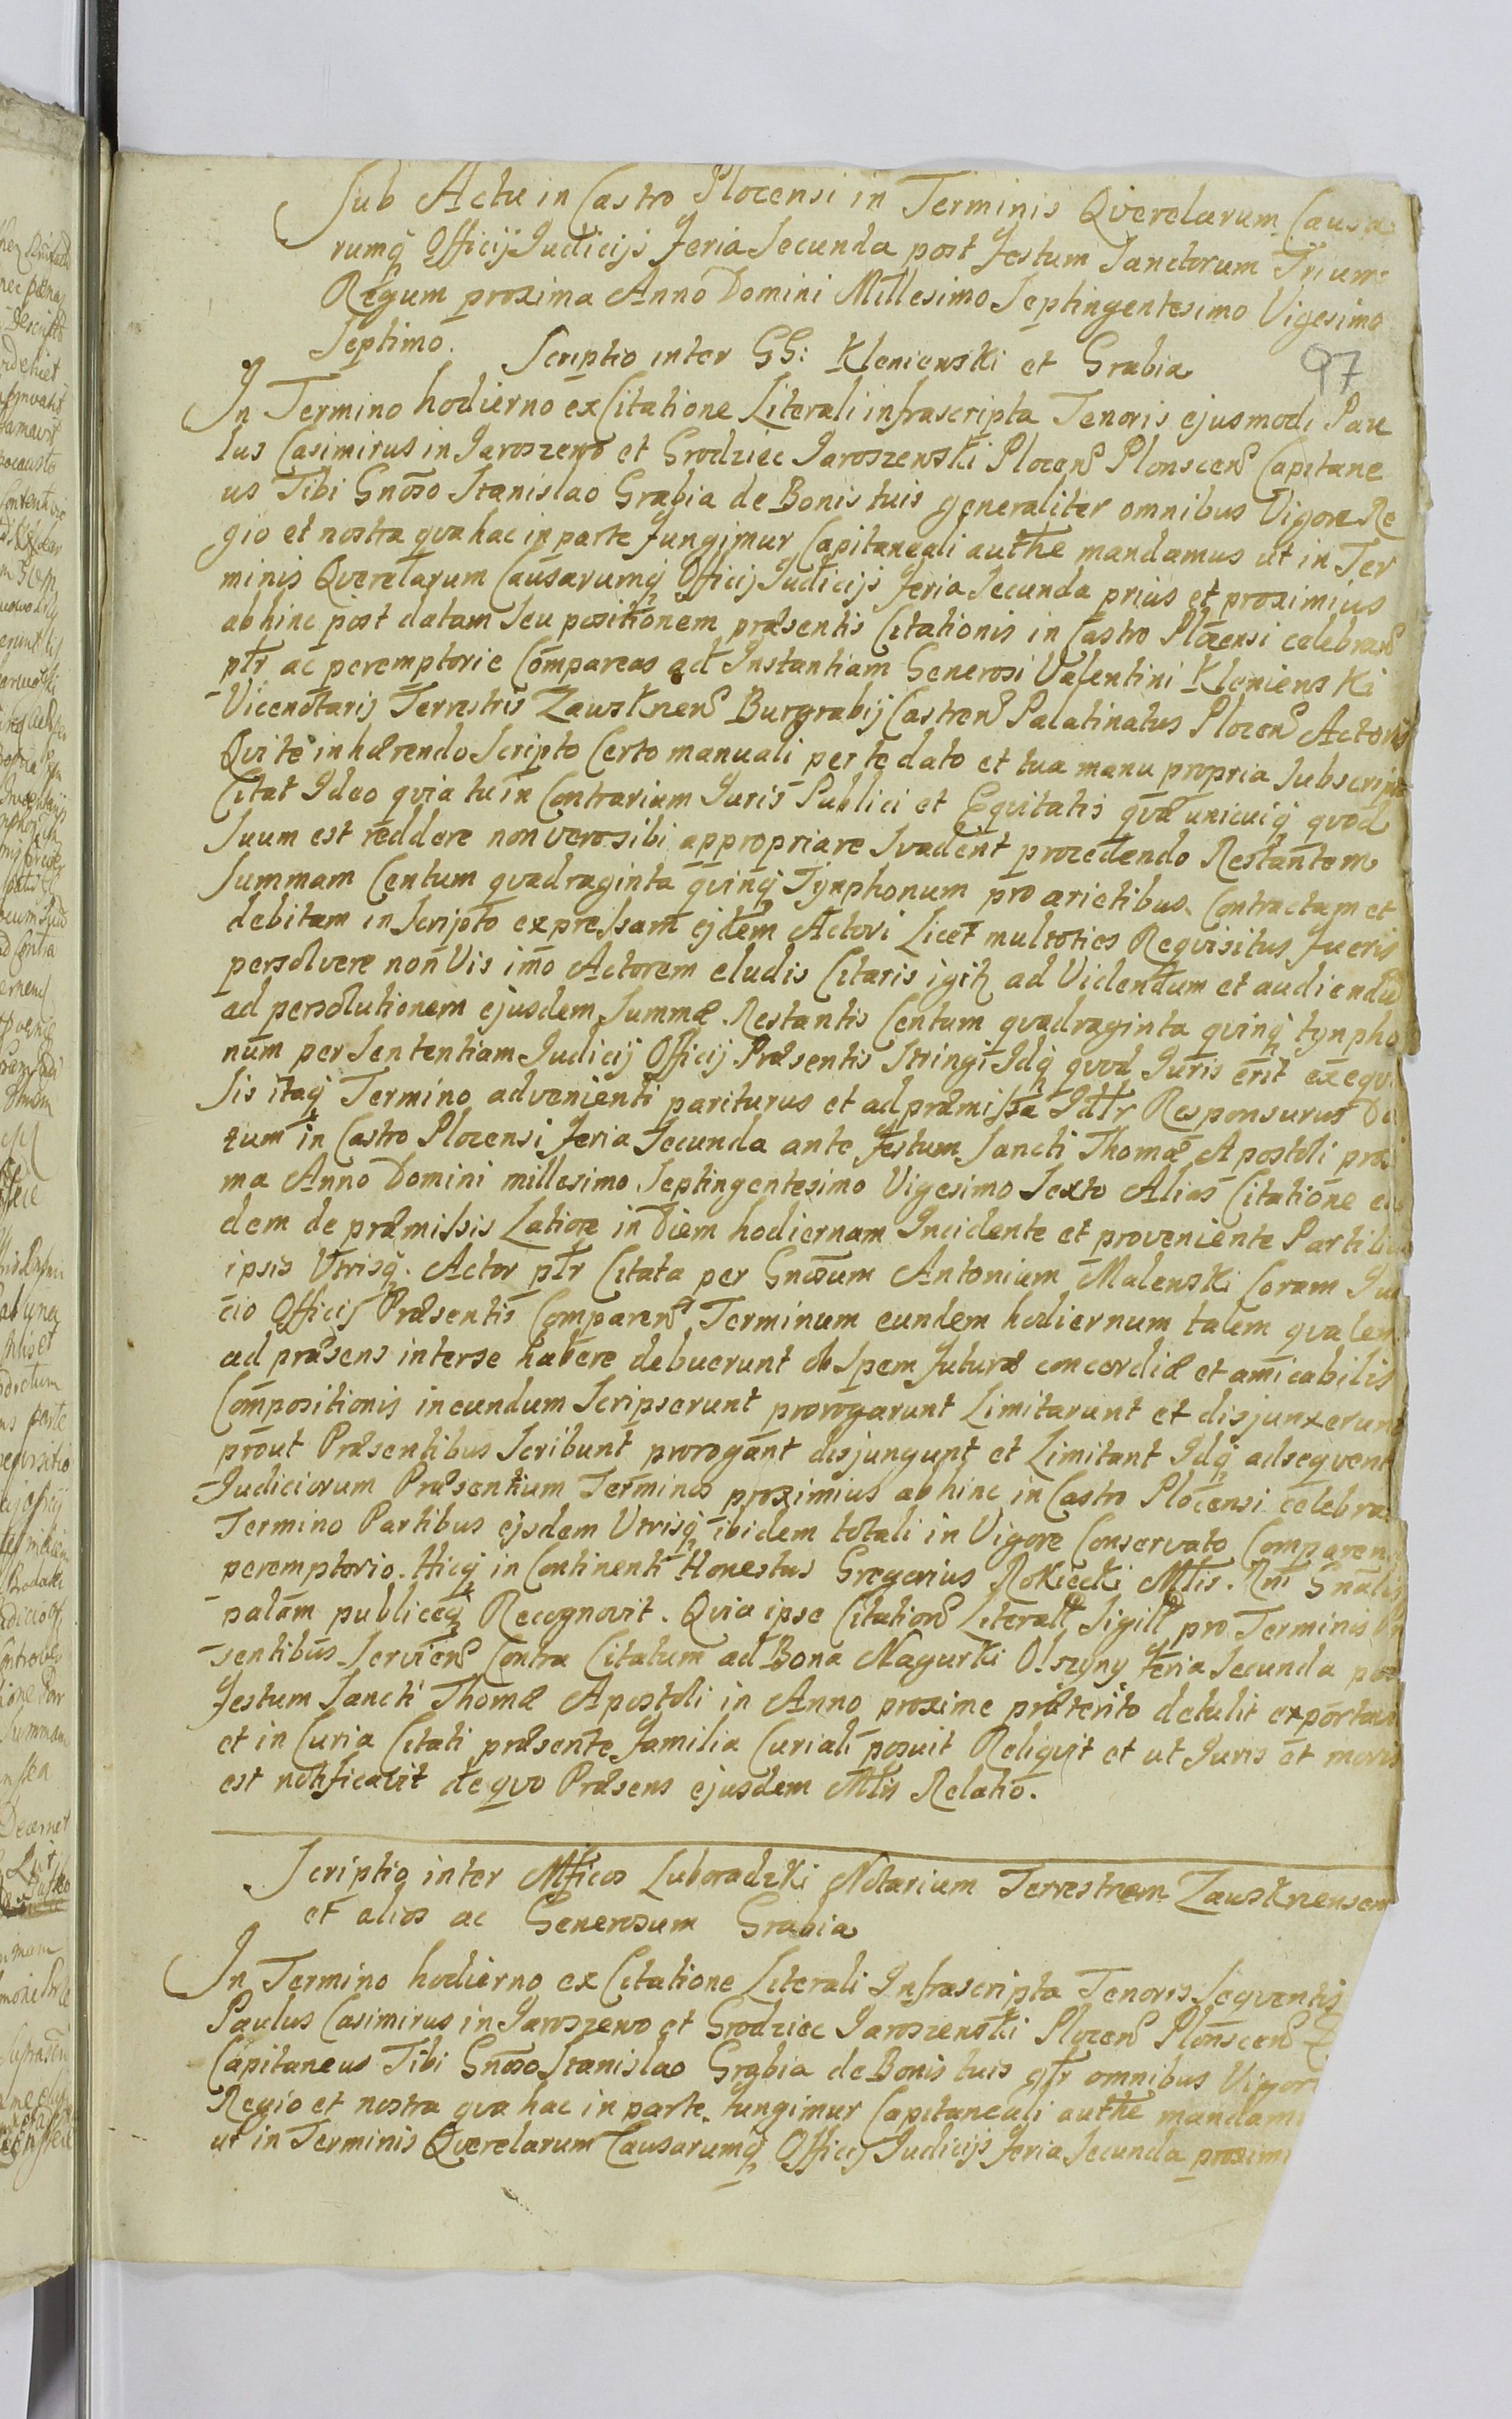 Sub Actu in Castro Plocensi in Terminis Qverelarum Causa
rumq Officij Judicijs Feria Secunda post Festum Sanctorum Trium
Regum proxima Anno Domini Millesimo Septingentesimo Vigesimo
Septimo. Scriptio inter GG: Kleniewski et Grabia
97
In Termino hodierno ex Citatione Literali infrascripta Tenoris ejusmodi Pau
lus Casimirus in Jaroszewo et Grodziec Jaroszewski Plocen Plonscen Capitane
us Tibi Gnoso Stanislao Grabia de Bonis tuis generaliter omnibus Vigore Re
gio et nostra qva hac in parte fungimur Capitaneali authe mandamus ut in Ter
minis Qverelarum Causarumq Officij Judicijs Feria Secunda prius et proximius
abhinc post datam seu positionem præsentis Citationis in Castro Plocensi celebran
ptr ac peremptorie Compareas ad Instantiam Generosi Valentini Kleniewski
Vicenotarij Terrestris Zawskrzen Burgrabij Castren Palatinatus Plocen Actoris
Qvi te inhærendo Scripto Certo manuali per te dato et tua manu propria Subscript
Citat Ideo qvia tu in Contrarium Juris Publici et Eqvitatis qvæ unicuiq qvod
Suum est reddere non vero sibi appropriare Svadent procedendo Restantem
Summam Centum qvadraginta qvinq Tynphonum pro arietibus Contractam et
debitam in Scripto expressam ejdem Actori Licet multoties Reqvisitus fueris
persolvere non Vis imo Actorem eludis Citaris igitr ad Videndum et audiendu
ad persolutionem ejusdem Summæ Restantis Centum qvadraginta qvinq tynpho
num per Sententiam Judicij Officij Præsentis Stringi Idq qvod Juris erit exeqvi
Sis itaq Termino advenienti pariturus et ad præmissa Idtr Responsurus Da
tum in Castro Plocensi Feria Secunda ante Festum Sancti Thomæ Apostoli proxi
ma Anno Domini millesimo Septingentesimo Vigesimo Sexto Alias Citatione ea
dem de præmissis Latiore in Diem hodiernam Incidente et proveniente Partibus
ipsis Utrisq. Actor ptr Citata per Gnosum Antonium Malewski Coram Jud
cio Officij Præsentis Comparen Terminum eundem hodiernum talem qvalem
ad præsens interse habere debuerunt ob Spem futuræ concordiæ et amicabilis
Compositionis ineundum Scripserunt prorogarunt Limitarunt et disjunxerunt
prout Præsentibus Scribunt prorogant disjungunt et Limitant Idq ad seqvent
Judiciorum Præsentium Terminos proximius abhinc in Castro Plocensi celebran
Termino Partibus ejsdem Utrisq ibidem totali in Vigore Conservato Comparend
peremptorio. Hicq in Continenti Honestus Gregorius Rokicki Mtis. Rni Gnalis
palam publiceq Recognovit. Qvia ipse Citation Literall Sigill pro Terminis Præ
sentibus Servien Contra Citatum ad Bona Nagurki Olszyny Feria Secunda post
Festum Sancti Thomæ Apostoli in Anno proxime præterito detulit exportavit
et in Curia Citati præsente familia Curiali posuit Reliqvit et ut Juris et moris
est notificavit de qvo Præsens ejusdem Mtis Relatio.
Scriptio inter Mficos Luboradzki Notarium Terrestrem Zawskrzensem
et alios ac Generosum Grabia
In Termino hodierno ex Citatione Literali Infrascripta Tenoris Seqventis
Paulus Casimirus in Jaroszewo et Grodziec Jaroszewski Plocen Plonscen
Capitaneus Tibi Gnoso Stanislao Grabia de Bonis tuis gtr omnibus Vigor
Regio et nostra qva hac in parte fungimur Capitaneali authe mandam
ut in Terminis Qverelarum Causarumq Officij Judicijs Feria Secunda proxim